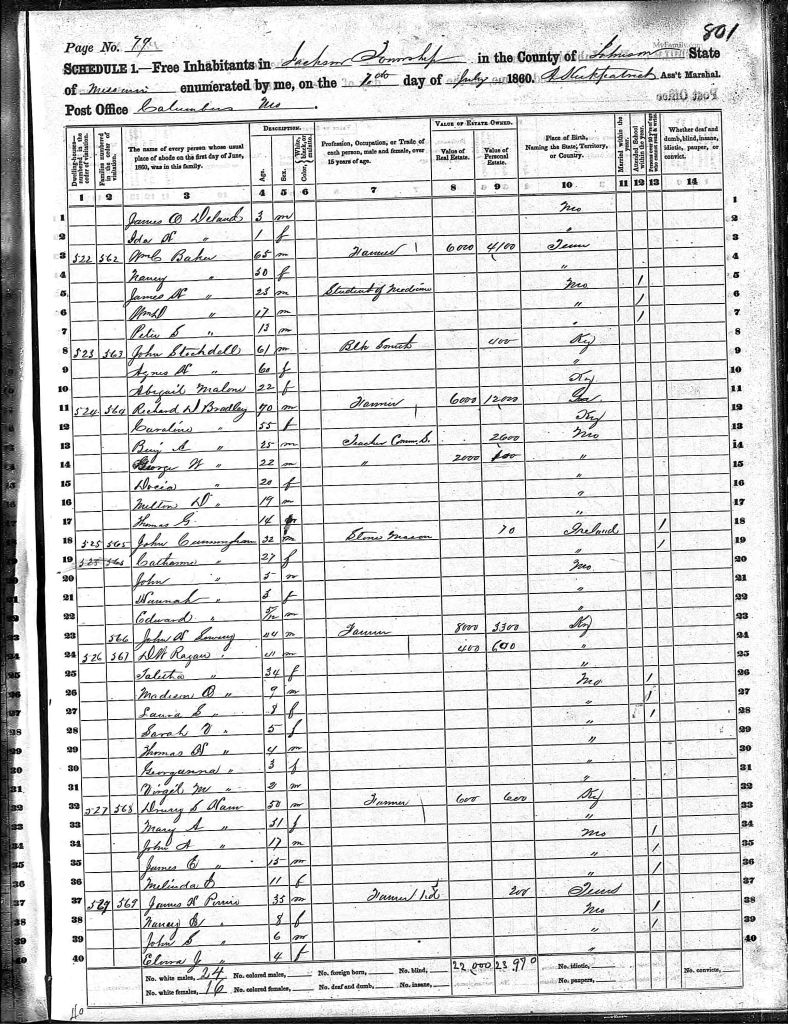 801
Page No. 79
SCHEDULE 1.—Free Inhabitants in Jackson Township in the County of Johnson State
of Missouri enumerated by me, on the day of July 1860. Ass't Marshal.
Post Office Columbus Mo
Dwelling-houses numbered in the order of visitation.
Families numbered in the order of visitation.
The name of every person whose usual place of abode on the first day of June, 1860, was in this family.
DESCRIPTION.
Age.
Sex.
Color, White, black, or mulatto.
Profession, Occupation, or Trade of each person, male and female, over 15 years of age.
VALUE OF ESTATE OWNED.
Value of Real Estate.
Value of Personal Estate.
Place of Birth, Naming the State, Territory, or Country.
Married within the year.
Attended School within the year.
Persons over 20 y'rs of age who cannot read & write.
Whether deaf and dumb, blind, insane, idiotic, pauper, or convict.
1 2 3 4 5 6 7 8 9 10 11 12 13 14
1 James O Deland 3 m Mo 1
2 Ida " 1 f " 2
3 522 562 Wm C Baker 65 m Farmer 6000 4100 Tenn 3
4 Nancy " 50 f " 4
5 James " 23 m Student of Medicine Mo 1 5
6 Wm D " 17 m " 1 6
7 Peter S " 13 m " 1 7
8 523 563 John Stockdell 61 m Blk Smith 400 Ky 8
9 Agnes " 60 f " 9
10 Abigail Malone 22 f Ky 10
11 524 564 Richard D Bradley 70 m Farmer 6000 12000 11
12 Caroline " 55 f Ky 12
13 Benj A " 25 m Teacher Comm. S. 2600 Mo 13
14 George W " 22 m " 2000 " 14
15 Docia " 20 f " 15
16 Milton D " 19 m " 16
17 Thomas G. 14 " 17
18 525 565 John Cunningham 32 m Stone Mason 70 Ireland 1 18
19 525 565 Catharine " 27 f " 1 19
20 John " 5 m Mo 20
21 Hannah " 3 f " 21
22 Edward " 5/12 m " 22
23 566 John Lowery 44 m Farmer 8000 3300 Ky 23
24 526 567 D W Ragan " m 400 600 " 24
25 Talitha " 34 f " 25
26 Madison " 9 m Mo 1 26
27 Laura E " 8 f 1 27
28 Sarah V " 5 f " 1 28
29 Thomas " 4 m " 29
30 Georganna " 3 f 30
31 Virgil M " 2 m " 31
32 527 568 Drury S Ham 50 m Farmer 600 600 Ky 32
33 Mary A " 51 f " 33
34 John A " 17 m Mo 1 34
35 James " 15 m " 1 35
36 Melinda 11 f " 1 36
37 569 James 35 m Farmer 200 Tenn 37
38 Nancy " 8 f Mo 1 38
39 John S " 6 m " 1 39
40 " 4 f " 40
No. white males, 24 No. colored males, No. foreign born, No. blind, 22,000 23,970 No. idiotic, No. convicts,
No. white females, 16 No. colored females, No. deaf and dumb, No. insane, No. paupers,